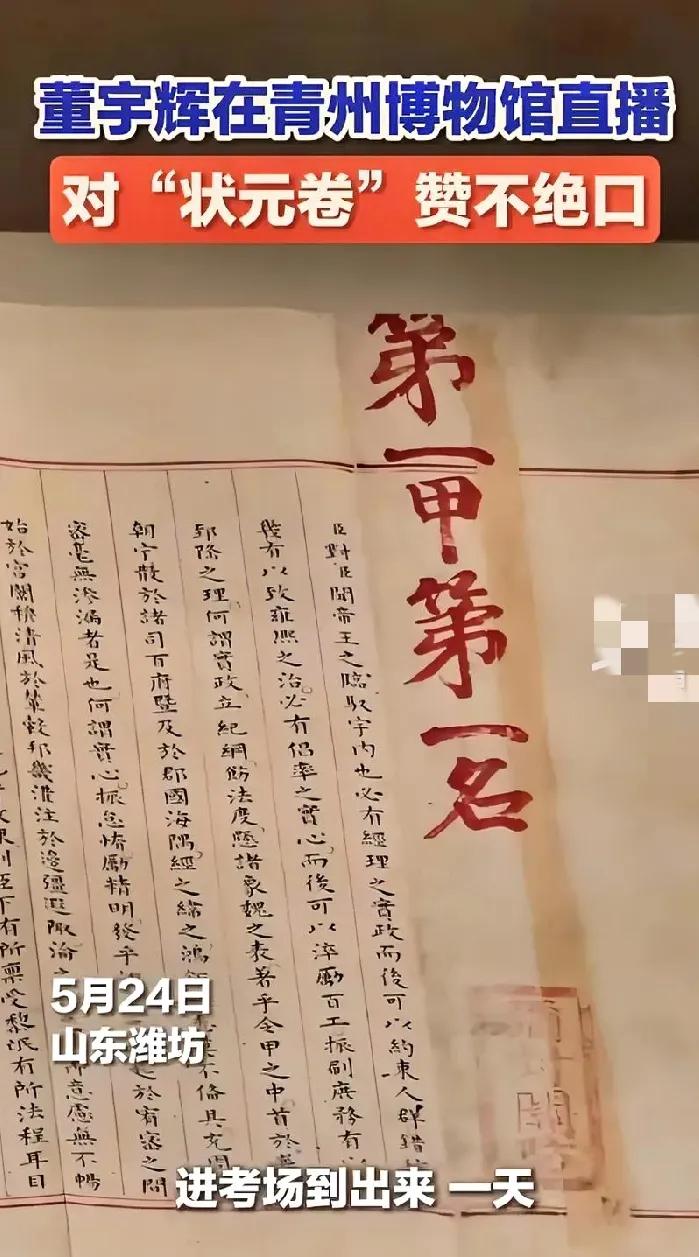 董宇辉在青州博物馆直播
对“状元卷”赞不绝口
第一甲第一名
臣對臣聞帝王之臨馭宇內也必有經理之實政而後可以約束人群錯
幾有以致雍熙之治必有倡率之實心而後可以淬勵百工振刷庶務有以
郅隆之理何謂實政立紀綱飭法度懸諸象魏之表著乎令甲之中首於
朝宁散於諸司百府暨及於郡國海隅經之緯之鴻 不備具充周
密毫無滲漏者是也何謂實心振怠惰勵精明發乎 起於宥密之間
始於宮闈穆清風於輦轂邦畿灌注於邊疆遐陬淪之 意慮無不暢
則臣下有所稟受黎氓有所法程耳目
5月24日
山东潍坊
进考场到出来 一天